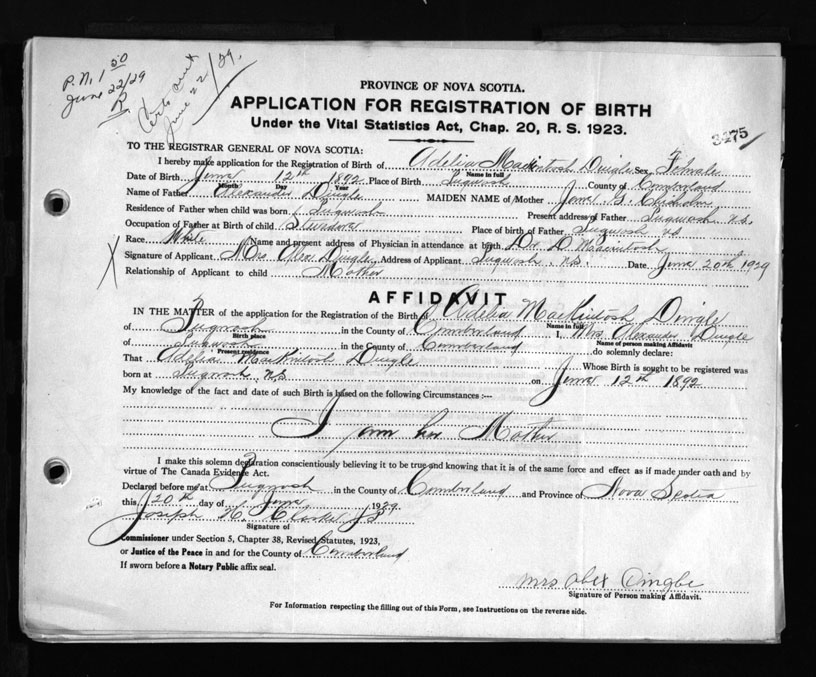 P.N. 1 50
June 22/29
R.
Certs sent
June 22/29.
PROVINCE OF NOVA SCOTIA.
APPLICATION FOR REGISTRATION OF BIRTH
Under the Vital Statistics Act, Chap. 20, R. S. 1923.
3275
TO THE REGISTRAR GENERAL OF NOVA SCOTIA:
I hereby make application for the Registration of Birth of Adelia MacKintosh Dingle Sex Female
Name in full
Date of Birth June 12th 1892 Place of Birth Pugwash County of Cumberland
Month Day Year
Name of Father Alexander Dingle MAIDEN NAME of Mother Jane B. Chisholm
Residence of Father when child was born Pugwash Present address of Father Pugwash N.S.
Occupation of Father at Birth of child Place of birth of Father Pugwash N.S.
Race White Name and present address of Physician in attendance at birth Dr D. MacKintosh
Signature of Applicant Mrs Alex Dingle Address of Applicant Pugwash N.S. Date June 20th 1929
Relationship of Applicant to child Mother
AFFIDAVIT
IN THE MATTER of the application for the Registration of the Birth of Adelia MacKintosh Dingle
Name in full
of Pugwash in the County of Cumberland I, Mrs Alexander Dingle
Birth place Name of person making Affidavit
of Pugwash in the County of Cumberland do solemnly declare:
Present residence
That Adelia MacKintosh Dingle Whose Birth is sought to be registered was
born at Pugwash N.S. on June 12th 1892
My knowledge of the fact and date of such Birth is based on the following Circumstances :—
I am her Mother
I make this solemn declaration conscientiously believing it to be true and knowing that it is of the same force and effect as if made under oath and by
virtue of The Canada Evidence Act.
Declared before me at Pugwash in the County of Cumberland and Province of Nova Scotia
this 20th day of June 1929
Joseph J P
Signature of
Commissioner under Section 5, Chapter 38, Revised Statutes, 1923,
or Justice of the Peace in and for the County of Cumberland
If sworn before a Notary Public affix seal.
Mrs Alex Dingle
Signature of Person making Affidavit.
For Information respecting the filling out of this Form, see Instructions on the reverse side.